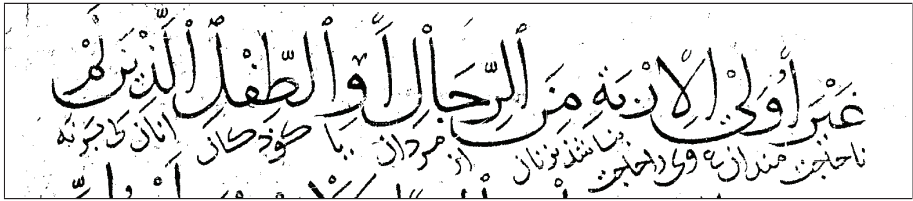 غَيْرَ أُولِيْ الْاِرْبَةِ مِنَ الرِّجَالِ اَوِ الطِّفْلِ الَّذِيْنَ لَمْ
ناحاجت مندان وی را حاجت نباشد بزنان از مردان یا کوذکان انان کی